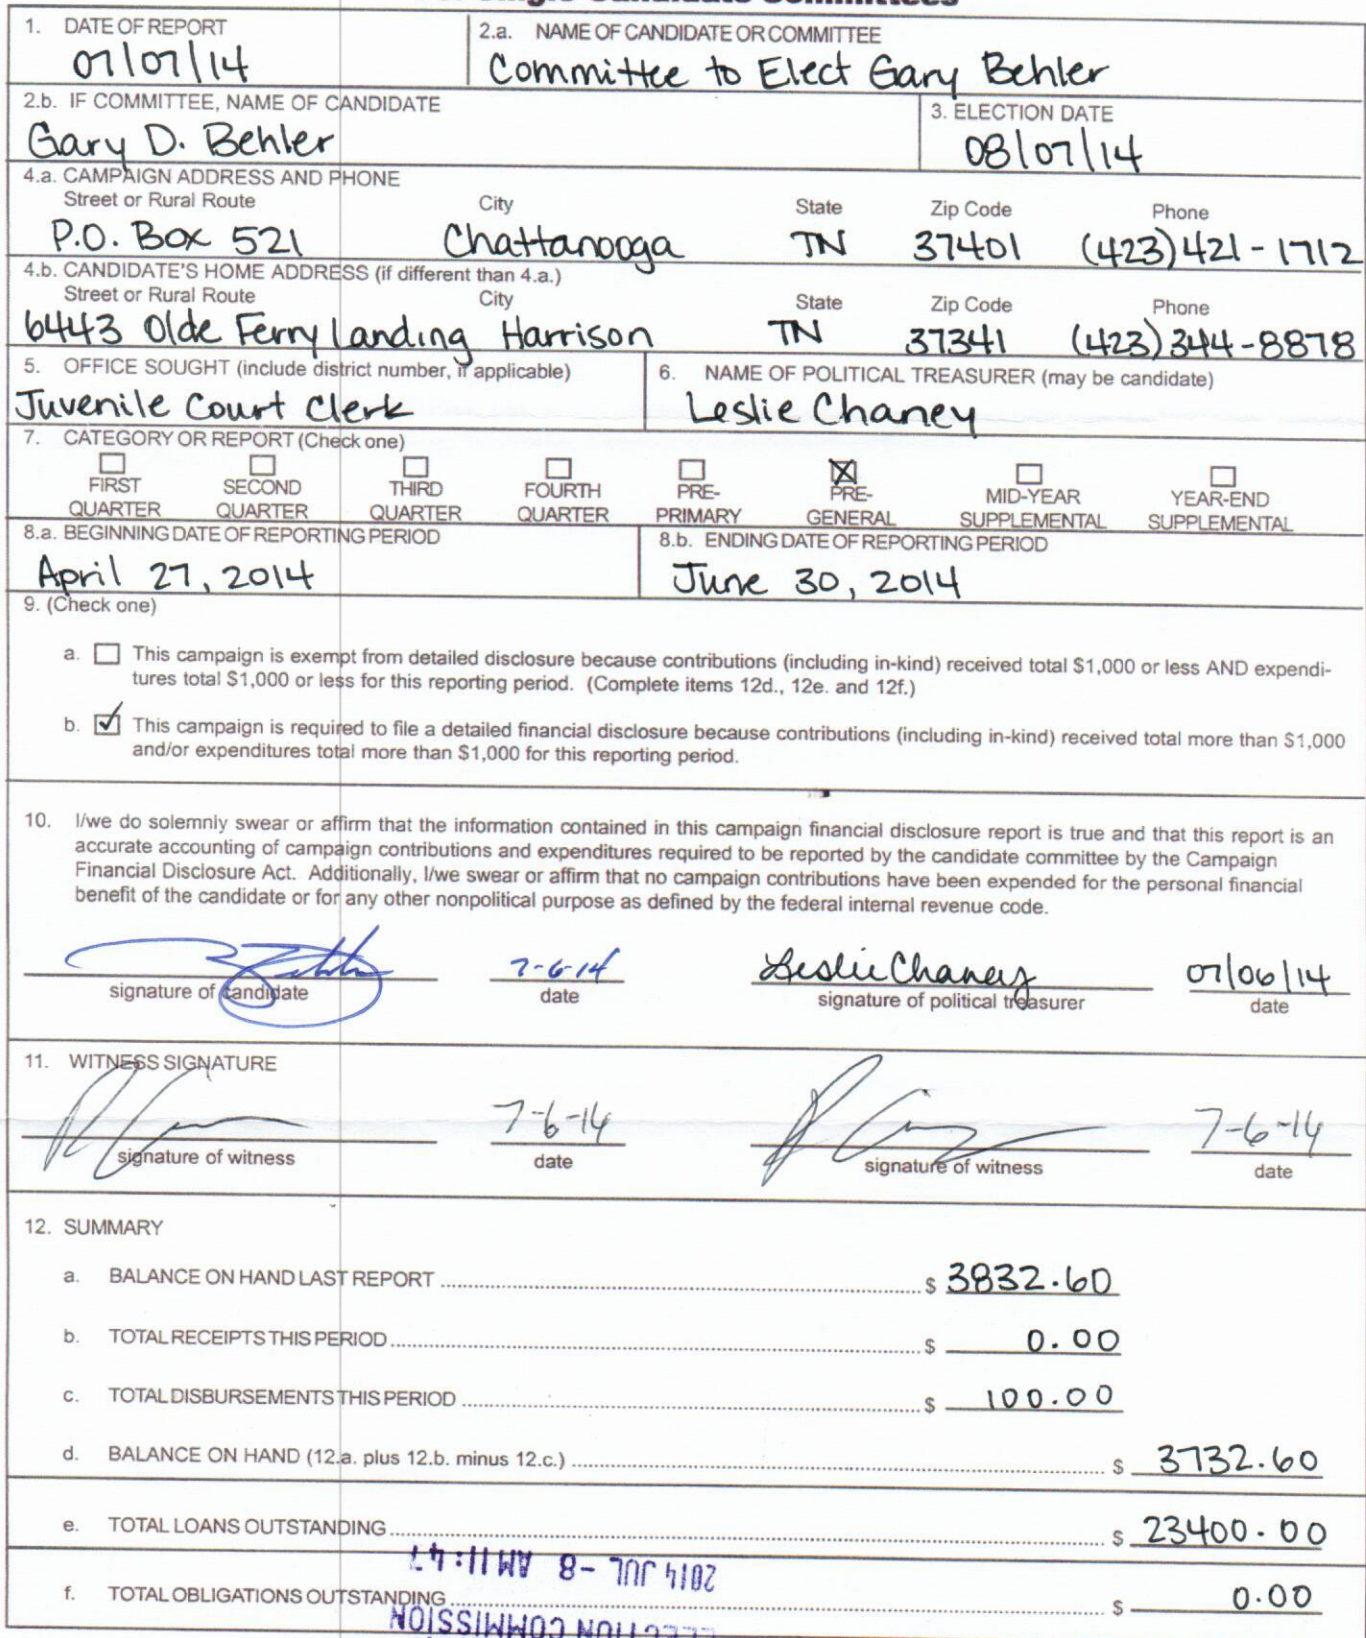 Committees
1. DATE OF REPORT
07/07/14
2.a. NAME OF CANDIDATE OR COMMITTEE
Committee to Elect Gary Behler
2.b. IF COMMITTEE, NAME OF CANDIDATE
Gary D. Behler
3. ELECTION DATE
08/07/14
4.a. CAMPAIGN ADDRESS AND PHONE
Street or Rural Route City State Zip Code Phone
P.O. Box 521 Chattanooga TN 37401 (423)421-1712
4.b. CANDIDATE'S HOME ADDRESS (if different than 4.a.)
Street or Rural Route City State Zip Code Phone
6443 Olde Ferry Landing Harrison TN 37341 (423)344-8878
5. OFFICE SOUGHT (include district number, if applicable)
Juvenile Court Clerk
6. NAME OF POLITICAL TREASURER (may be candidate)
Leslie Chaney
7. CATEGORY OR REPORT (Check one)
FIRST QUARTER
SECOND QUARTER
THIRD QUARTER
FOURTH QUARTER
PRE-PRIMARY
PRE-GENERAL
MID-YEAR SUPPLEMENTAL
YEAR-END SUPPLEMENTAL
8.a. BEGINNING DATE OF REPORTING PERIOD
April 27, 2014
8.b. ENDING DATE OF REPORTING PERIOD
June 30, 2014
9. (Check one)
a. This campaign is exempt from detailed disclosure because contributions (including in-kind) received total $1,000 or less AND expendi-
tures total $1,000 or less for this reporting period. (Complete items 12d., 12e. and 12f.)
b. This campaign is required to file a detailed financial disclosure because contributions (including in-kind) received total more than $1,000
and/or expenditures total more than $1,000 for this reporting period.
10. I/we do solemnly swear or affirm that the information contained in this campaign financial disclosure report is true and that this report is an
accurate accounting of campaign contributions and expenditures required to be reported by the candidate committee by the Campaign
Financial Disclosure Act. Additionally, I/we swear or affirm that no campaign contributions have been expended for the personal financial
benefit of the candidate or for any other nonpolitical purpose as defined by the federal internal revenue code.
7-6-14 Leslie Chaney 07/06/14
signature of candidate date signature of political treasurer date
11. WITNESS SIGNATURE
7-6-14 7-6-14
signature of witness date signature of witness date
12. SUMMARY
a. BALANCE ON HAND LAST REPORT $ 3832.60
b. TOTAL RECEIPTS THIS PERIOD $ 0.00
c. TOTAL DISBURSEMENTS THIS PERIOD $ 100.00
d. BALANCE ON HAND (12.a. plus 12.b. minus 12.c.) $ 3732.60
e. TOTAL LOANS OUTSTANDING $ 23400.00
2014 JUL -8 AM 11:47
f. TOTAL OBLIGATIONS OUTSTANDING $ 0.00
COMMISSION